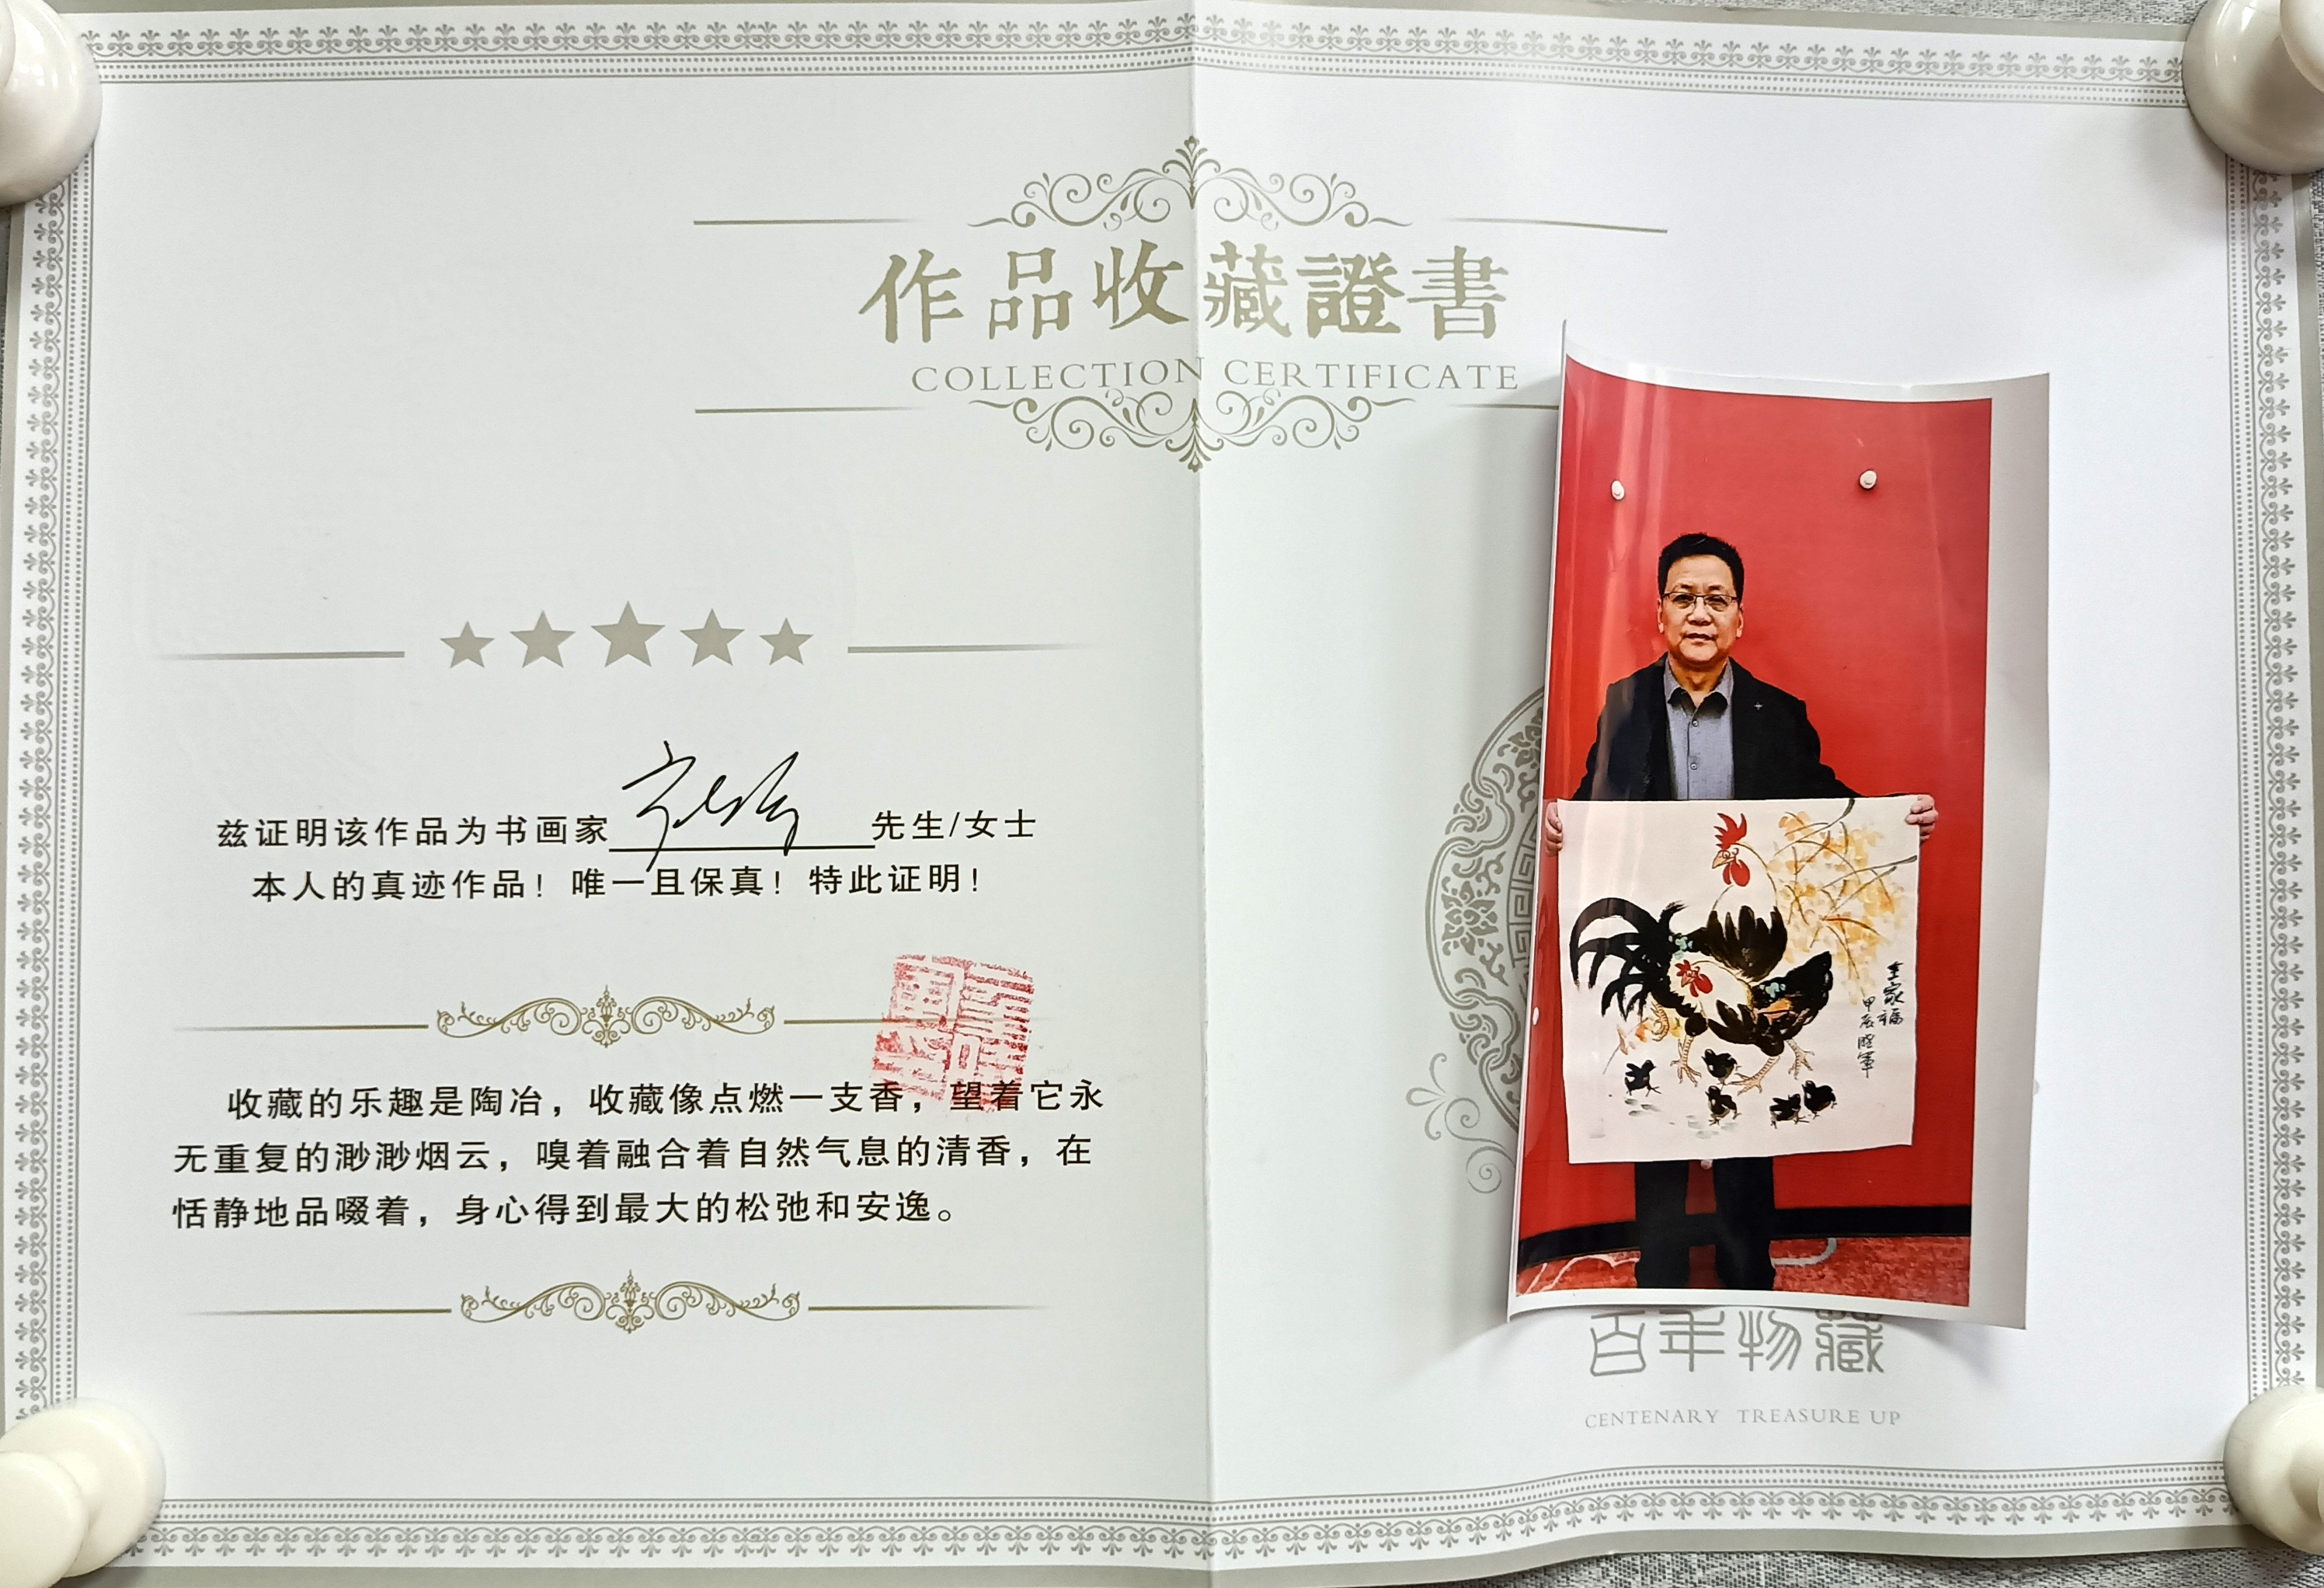 作品收藏證書
COLLECTION CERTIFICATE
兹证明该作品为书画家 先生/女士
本人的真迹作品！唯一且保真！特此证明！
收藏的乐趣是陶冶，收藏像点燃一支香，望着它永
无重复的渺渺烟云，嗅着融合着自然气息的清香，在
恬静地品啜着，身心得到最大的松弛和安逸。
全家福
甲辰
百年物藏
CENTENARY TREASURE UP